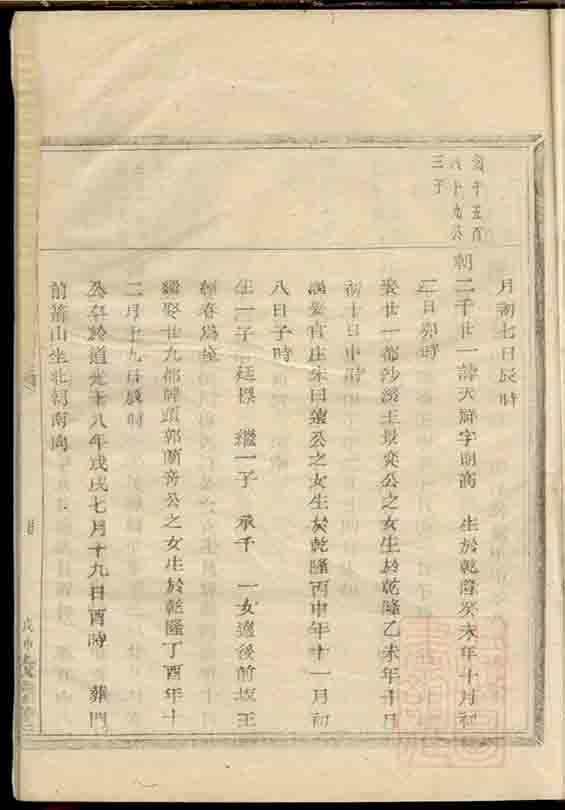 月初七日辰時
亥千五百
八十九公
三子
朝二千廿一諱大辯字朗高 生於乾隆癸未年十月初
二日卯時
娶廿一都沙濱王景奕公之女生於乾隆乙未年十月
初十日申時
繼娶官庄朱曰蓮公之女生於乾隆丙申年十一月初
八日子時
生一子廷標 繼一子 承千 一女適後前坂王
春為
繼娶廿九都頭郭蘭公之女生於乾隆丁酉年十
二月十九日辰時
公卒於道光十八年戊戌七月十九日酉時 葬門
前前山坐北朝南向
戊申